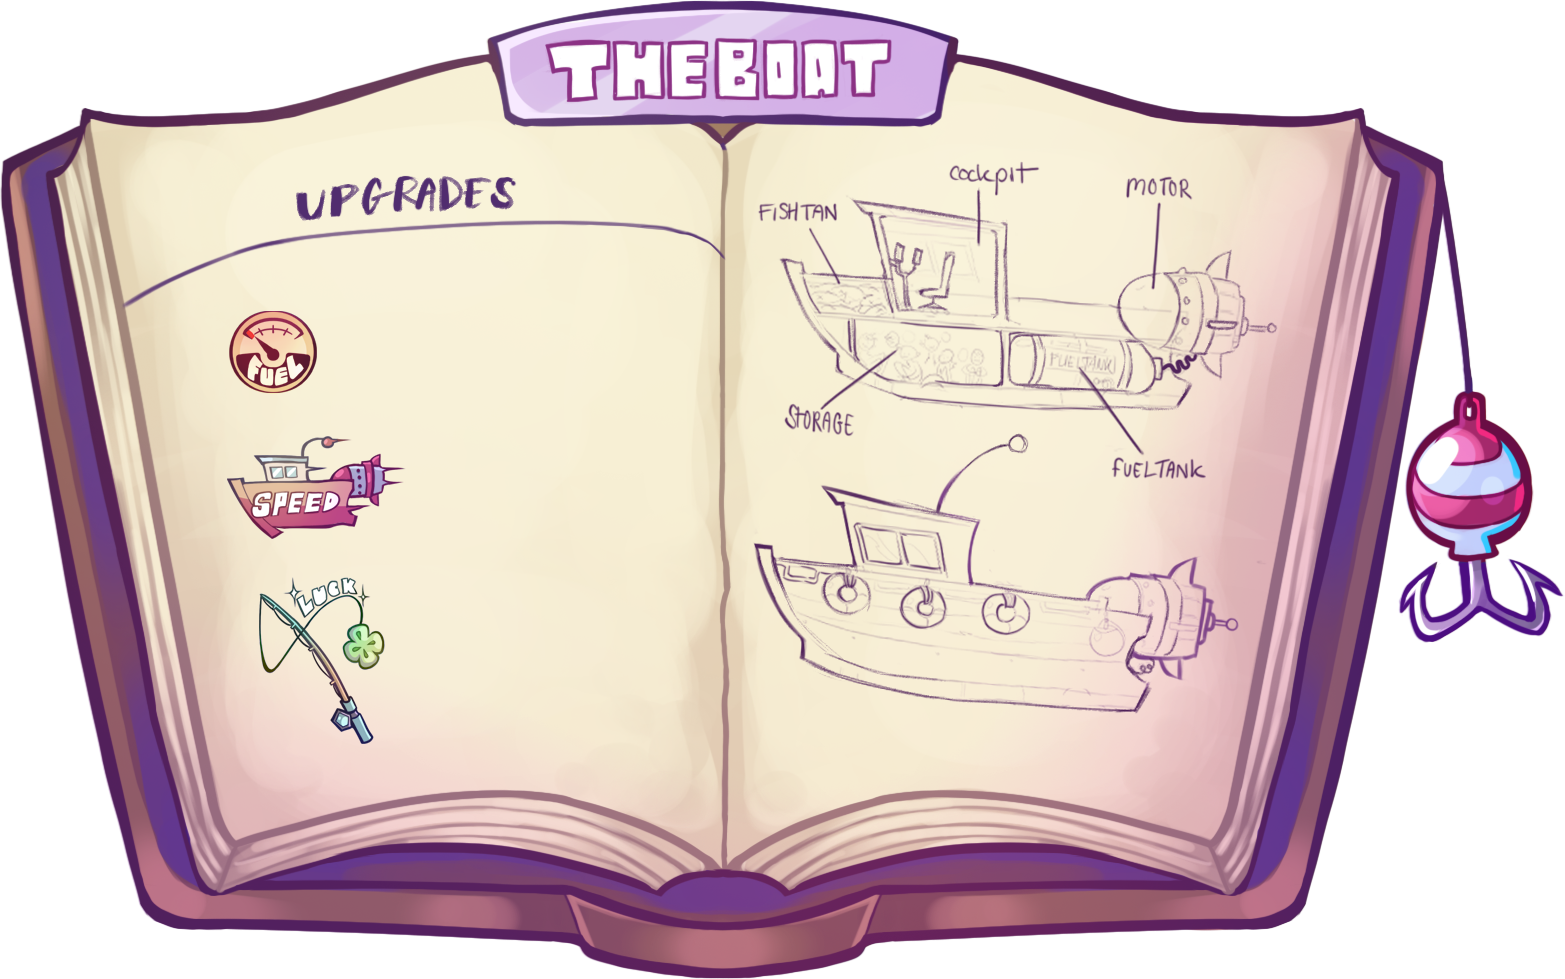 THE BOAT
UPGRADES
FUEL
SPEED
LUCK
cockpit
MOTOR
FISHTAN
FUELTANK
STORAGE
FUELTANK